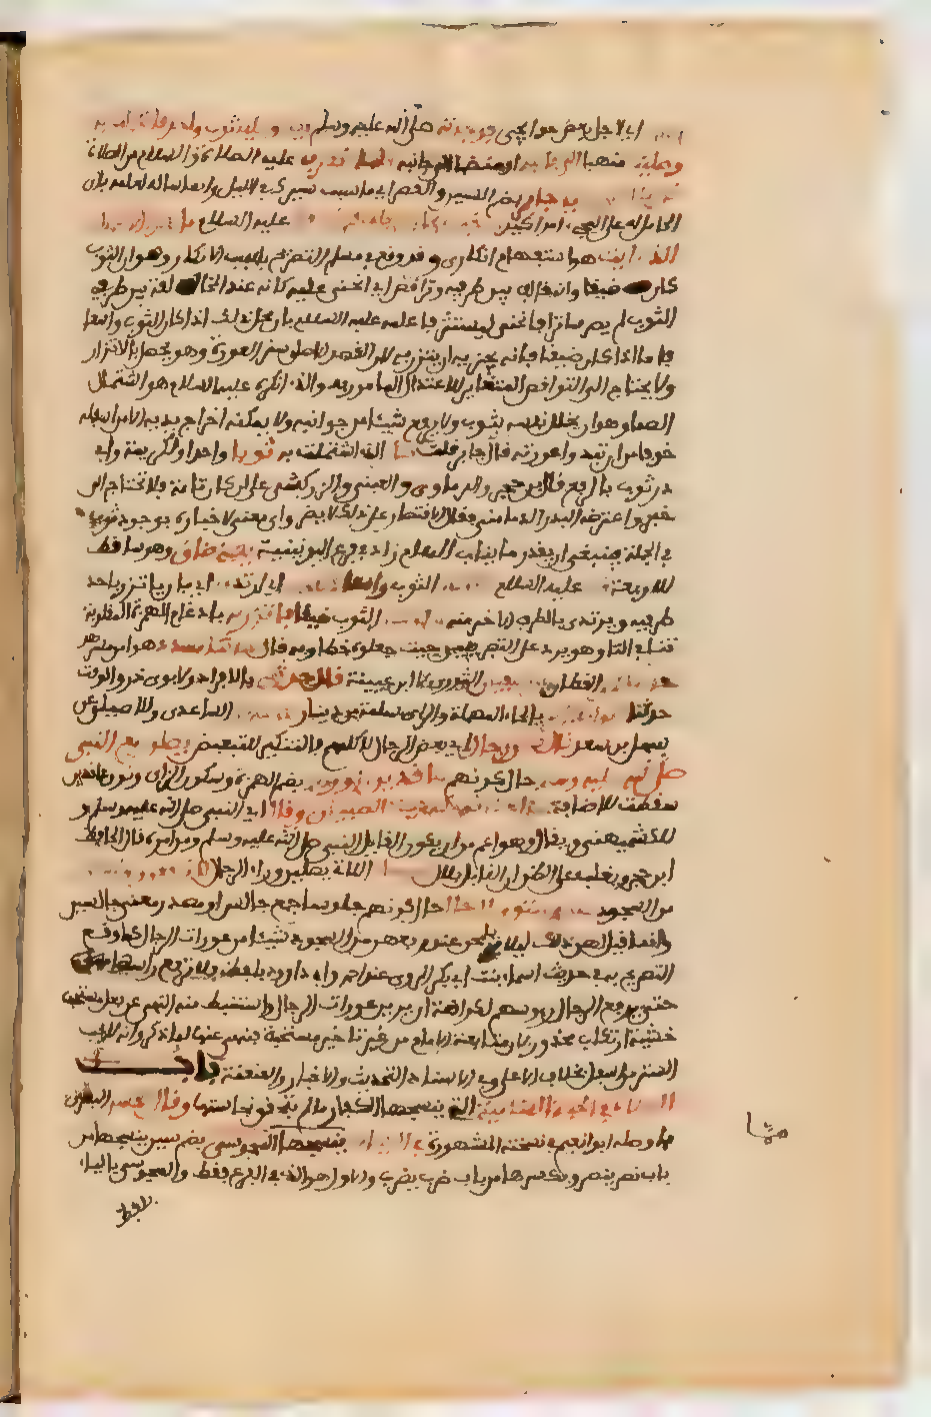 اي لاجل بعض حوائجي فوجدته صلى الله عليه وسلم يصلي وعلي ثوب واحد فاشتملت به
وصليت منتهيا الى جانبه او منضما الى جانبه فلما انصرف عليه الصلاة والسلام من الصلاة
يا جابر بضم السين والقصر اي ما سبب سيرك في الليل وانما ساله لعلمه بان
الحامل له على المجيء امر اكيد عليه السلام ما هذا الاشتمال
الذي رايت هو استفهام انكاري وقد وقع في مسلم التصريح بسبب الانكار وهو ان الثوب
كان ضيقا وانه خالف بين طرفيه وتواقص اي انحنى عليه كانه عند المخالفة بين طرفي
الثوب لم يصر ساترا فانحنى ليستتر فاعلمه عليه السلام بان محل ذلك اذا كان الثوب واسعا
فاما اذا كان ضيقا فانه يجزيه ان يتزر به لان القصد الاصلي ستر العورة وهو يحصل بالاتزار
ولا يحتاج الى التواقص المغاير للاعتدال المامور به والذي انكره عليه السلام هو اشتمال
الصما وهو ان يخلل نفسه بثوب ولا يرفع شيئا من جوانبه ولا يمكنه اخراج يديه الا من اسفله
خوفا من ان تبدو عورته قال جابر قلت الذي اشتملت به ثوبا واحدا ولكريمة وابي
ذر ثوب بالرفع قال ابن حجر والبرماوي والعيني والزركشي على ان كان تامة فلا تحتاج الى
خبر واعترضه البدر الدماميني فقال الاقتصار على ذلك لا يضر واي معنى لاخباره بوجود ثوب
في الجملة فينبغي ان يقدر ما يناسب المقام زاد في فرع اليونينية يعني ضاق وهو ساقط
للاربعة عليه السلام الثوب واسعا اي ارتد اي بان ياتزر باحد
طرفيه ويرتدي بالطرف الاخر منه الثوب ضيقا فاتزر به بادغام الهمزة المقلوبة
تاء في التا وهو يرد على التصريفيين حيث جعلوه خطا وبه قال حدثنا مسدد هو ابن مسرهد
القطان سفيان الثوري لا ابن عيينة قال حدثني بالافراد ولابوي ذر والوقت
حدثنا ابو حازم بالحاء المهملة والزاي سلمة بن دينار الساعدي وللاصيلي عن
سهل بن سعد قال كان رجال اي بعض الرجال لا كلهم فالتنكير للتبعيض يصلون مع النبي
صلى الله عليه وسلم حال كونهم عاقدي ازرهم بضم الهمزة وسكون الزاي ونون عاقدين
سقطت للاضافة كهيئة الصبيان وقال اي النبي صلى الله عليه وسلم و
للكشميهني ويقال وهو اعم من ان يكون القايل النبي صلى الله عليه وسلم او من امره قال الحافظ
ابن حجر ويغلب على الظن ان القايل بلال للنساء اللاتي يصلين وراء الرجال لا ترفعن رءوسكن
من السجود حتى يستوي الرجال حال كونهم جلوسا جمع جالس او مصدر بمعنى جالسين
وانما قيل لهن ذلك ليلا يلمحن عند رفعهن من السجود شيئا من عورات الرجال كما وقع
التصريح به في حديث اسماء بنت ابي بكر المروي عند احمد وابي داوود بلفظ فلا ترفع راسها
حتى يرفع الرجال رءوسهم كراهة ان يرين عورات الرجال واستنبط منه النهي عن فعل مستحب
خشية ارتكاب محذور لان متابعة الامام من غير تاخير مستحبة فنهين عنها لما ذكر وانه لا يجب
الستر من اسفل بخلاف الاعلى وفي الاسناد التحديث والاخبار والعنعنة باب
الصلاة في الجبة الشامية التي ينسجها الكفار ما لم يتحقق نجاستها وقال الحسن البصري
مما وصله ابو نعيم في نسخته المشهورة في الثياب ينسجها المجوسي بضم سين ينسجها من
باب نصر ينصر وبكسرها من باب ضرب يضرب والاول هو الذي في الفرع فقط والمجوسي بالياء